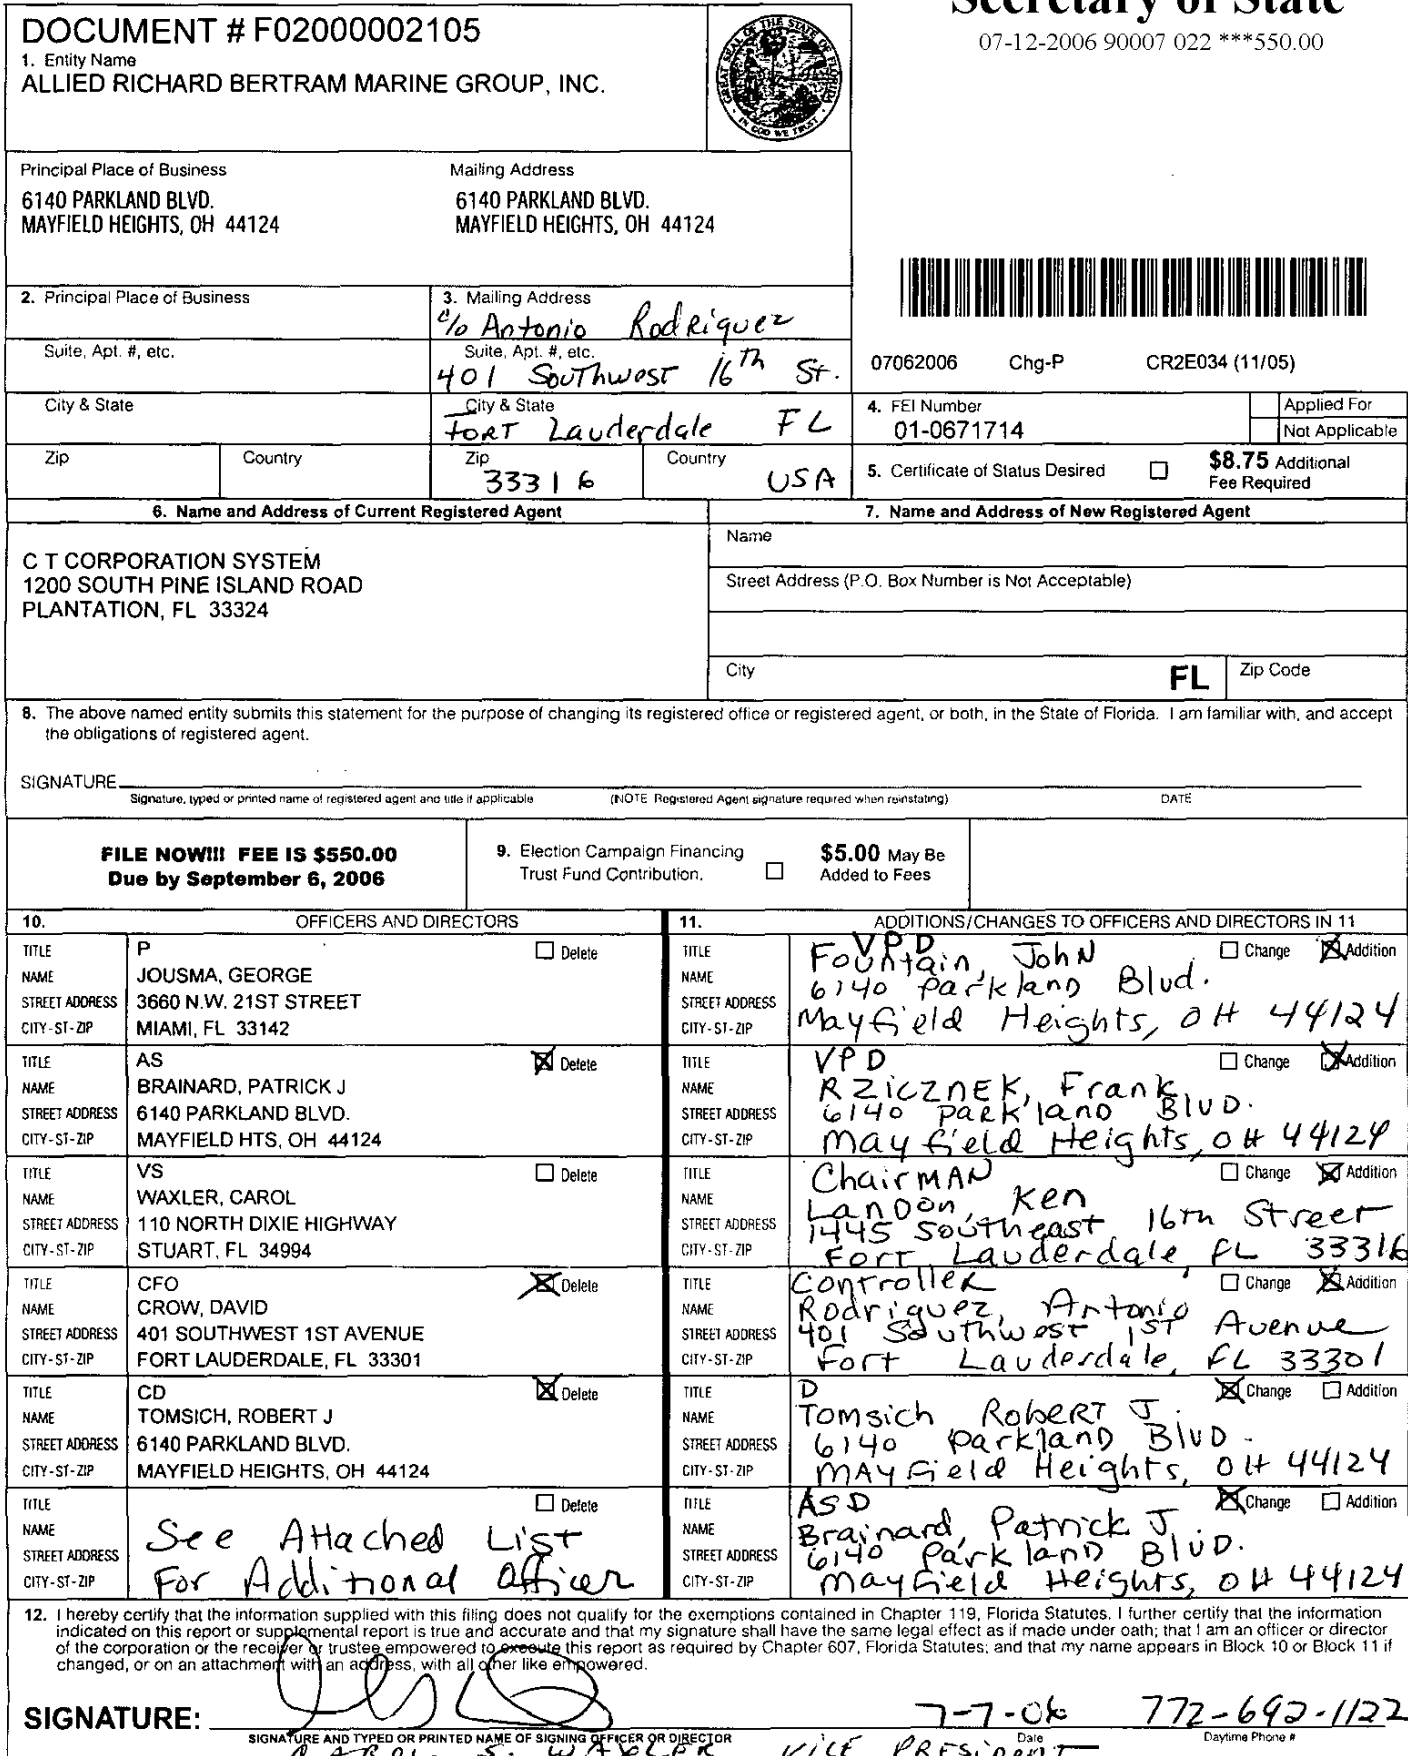 Secretary of State
07-12-2006 90007 022 ***550.00
DOCUMENT # F02000002105
1. Entity Name
ALLIED RICHARD BERTRAM MARINE GROUP, INC.
GREAT SEAL OF THE STATE OF FLORIDA
IN GOD WE TRUST
Principal Place of Business
6140 PARKLAND BLVD.
MAYFIELD HEIGHTS, OH 44124
Mailing Address
6140 PARKLAND BLVD.
MAYFIELD HEIGHTS, OH 44124
2. Principal Place of Business
3. Mailing Address
c/o Antonio Rodriguez
Suite, Apt. #, etc.
Suite, Apt. #, etc.
401 Southwest 16th St.
07062006 Chg-P CR2E034 (11/05)
City & State
City & State
Fort Lauderdale FL
4. FEI Number
01-0671714
Applied For
Not Applicable
Zip
Country
Zip
33316
Country
USA
5. Certificate of Status Desired
$8.75 Additional
Fee Required
6. Name and Address of Current Registered Agent
C T CORPORATION SYSTEM
1200 SOUTH PINE ISLAND ROAD
PLANTATION, FL 33324
7. Name and Address of New Registered Agent
Name
Street Address (P.O. Box Number is Not Acceptable)
City
FL
Zip Code
8. The above named entity submits this statement for the purpose of changing its registered office or registered agent, or both, in the State of Florida. I am familiar with, and accept
the obligations of registered agent.
SIGNATURE
Signature, typed or printed name of registered agent and title if applicable
(NOTE Registered Agent signature required when reinstating)
DATE
FILE NOW!!! FEE IS $550.00
Due by September 6, 2006
9. Election Campaign Financing
Trust Fund Contribution.
$5.00 May Be
Added to Fees
10. OFFICERS AND DIRECTORS
TITLE P Delete
NAME JOUSMA, GEORGE
STREET ADDRESS 3660 N.W. 21ST STREET
CITY-ST-ZIP MIAMI, FL 33142
TITLE AS Delete
NAME BRAINARD, PATRICK J
STREET ADDRESS 6140 PARKLAND BLVD.
CITY-ST-ZIP MAYFIELD HTS, OH 44124
TITLE VS Delete
NAME WAXLER, CAROL
STREET ADDRESS 110 NORTH DIXIE HIGHWAY
CITY-ST-ZIP STUART, FL 34994
TITLE CFO Delete
NAME CROW, DAVID
STREET ADDRESS 401 SOUTHWEST 1ST AVENUE
CITY-ST-ZIP FORT LAUDERDALE, FL 33301
TITLE CD Delete
NAME TOMSICH, ROBERT J
STREET ADDRESS 6140 PARKLAND BLVD.
CITY-ST-ZIP MAYFIELD HEIGHTS, OH 44124
TITLE Delete
NAME See Attached List
STREET ADDRESS
CITY-ST-ZIP For Additional Officer
11. ADDITIONS/CHANGES TO OFFICERS AND DIRECTORS IN 11
TITLE VPD Change Addition
NAME Fountain, John
STREET ADDRESS 6140 Parkland Blvd.
CITY-ST-ZIP Mayfield Heights, OH 44124
TITLE VPD Change Addition
NAME RZICZNEK, Frank
STREET ADDRESS 6140 Parkland BLVD.
CITY-ST-ZIP Mayfield Heights, OH 44124
TITLE ChairMAN Change Addition
NAME Landon, Ken
STREET ADDRESS 1445 Southeast 16th Street
CITY-ST-ZIP Fort Lauderdale, FL 33316
TITLE Controller Change Addition
NAME Rodriguez, Antonio
STREET ADDRESS 401 Southwest 1ST Avenue
CITY-ST-ZIP Fort Lauderdale, FL 33301
TITLE D Change Addition
NAME Tomsich Robert J.
STREET ADDRESS 6140 Parkland BLVD.
CITY-ST-ZIP MAYField Heights, OH 44124
TITLE ASD Change Addition
NAME Brainard, Patrick J.
STREET ADDRESS 6140 Parkland BLVD.
CITY-ST-ZIP Mayfield Heights, OH 44124
12. I hereby certify that the information supplied with this filing does not qualify for the exemptions contained in Chapter 119, Florida Statutes. I further certify that the information
indicated on this report or supplemental report is true and accurate and that my signature shall have the same legal effect as if made under oath; that I am an officer or director
of the corporation or the receiver or trustee empowered to execute this report as required by Chapter 607, Florida Statutes; and that my name appears in Block 10 or Block 11 if
changed, or on an attachment with an address, with all other like empowered.
SIGNATURE: 7-7-06 772-692-1122
SIGNATURE AND TYPED OR PRINTED NAME OF SIGNING OFFICER OR DIRECTOR Date Daytime Phone #
CAROL S. WAXLER VICE PRESIDENT